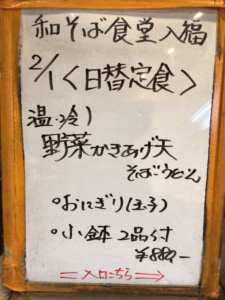 和そば食堂入福
2/1<日替定食>
温・冷)
野菜かきあげ天
そばorうどん
・おにぎり(玉子)
・小鉢2品付
¥880-
入口こちら→